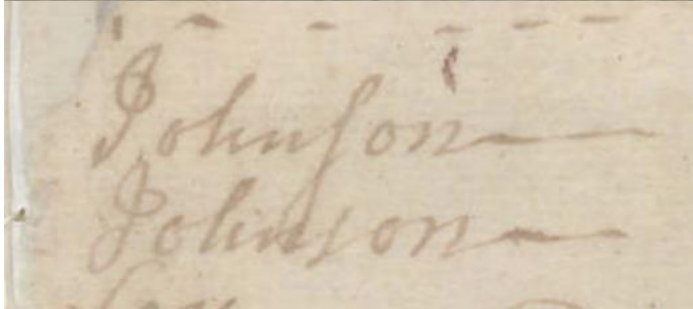 Johnson
Johnson